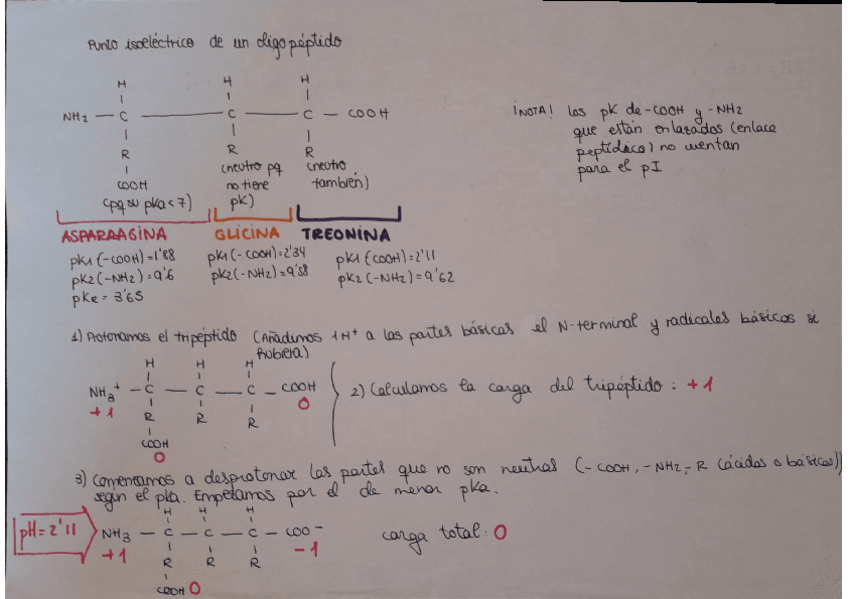 Punto isoeléctrico de un oligopéptido
H H H
NH2 — C — C — C — COOH
R R R
COOH (neutro pq (neutro
(pq su pka < 7) no tiene también)
pK)
¡NOTA! los pK de -COOH y -NH2
que están enlazados (enlace
peptídico) no cuentan
para el pI
ASPARRAGINA GLICINA TREONINA
pK1 (-COOH) = 1'88 pK1 (-COOH) = 2'34 pK1 (COOH) = 2'11
pK2 (-NH2) = 9'6 pK2 (-NH2) = 9'58 pK2 (-NH2) = 9'62
pKR = 3'65
1) Protonamos el tripéptido (Añadimos 1H+ a las partes básicas el N-terminal y radicales básicos si
hubiera)
H H H
NH3+ — C — C — C — COOH
+1 0
R R R
COOH
0
2) Calculamos la carga del tripéptido : +1
3) Comenzamos a desprotonar las partes que no son neutras (-COOH, -NH2, -R (ácidos o básicos))
según el pka. Empezamos por el de menor pka.
H H H
pH = 2'11 NH3 — C — C — C — COO-
+1 -1
R R R
COOH 0
carga total : 0